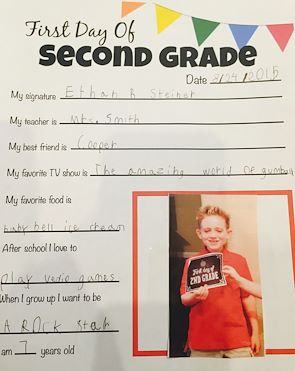 First Day Of
SECOND GRADE
Date 3/24/2015
My signature Ethan R Steiner
My teacher is Mrs. Smith
My best friend is Cooper
My favorite TV show is The amazing world of gumball
My favorite food is
baby bell ice cream
After school I love to
play vedio games
When I grow up I want to be
A ROCK Star
am 7 years old
First day of
2ND GRADE